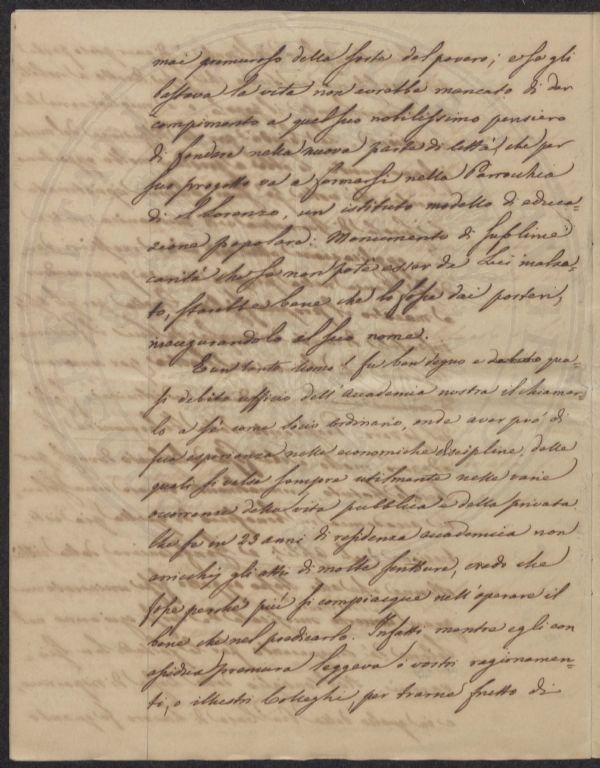 mai premuroso della sorte del povero; e se gli
bastava la vita non avrebbe mancato di dar
compimento a quel suo nobilissimo pensiero
di fondare nella nuova parte di città che per
suo progetto va a formarsi nella Parrocchia
di S. Lorenzo, un istituto modello di educa=
zione popolare: Monumento di sublime
carità che se non potè esser da Lui inalza=
to, starebbe bene che lo fosse dai posteri,
inaugurandolo al suo nome.
E un tanto Uomo! fu ben degno e qua=
si debito ufficio dell'Accademia nostra il chiamar=
lo a sè come socio ordinario, onde aver prò di
sua esperienza nelle economiche discipline, delle
quali si valse sempre utilmente nelle varie
occorrenze della vita pubblica e della privata.
Che se in 23 anni di residenza accademica non
arricchij gli atti di molte scritture, credo che
fosse perchè più si compiacque nell'operare il
bene che nel predicarlo. Infatti mentre egli con
assidua premura leggeva i vostri ragionamen=
ti, o illustri Colleghi, per trarne frutto di